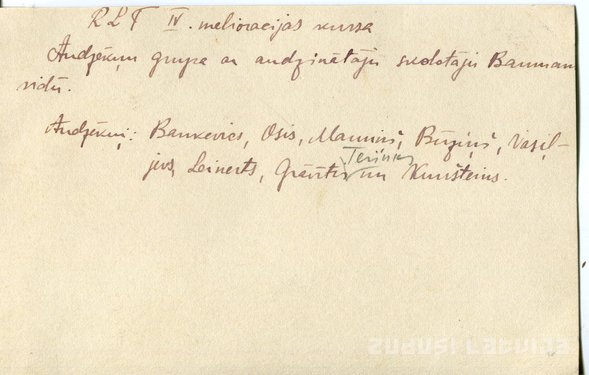 RLT IV. meliorācijas kursa
Audzēkņu grupa ar audzinātāju skolotāju Bauman
vidū.
Audzēkņi: Bankevics, Osis, Mauriņš, Bērziņš, Vasiļ-
jevs, Leinerts, Grāvītis un Kunšteins.